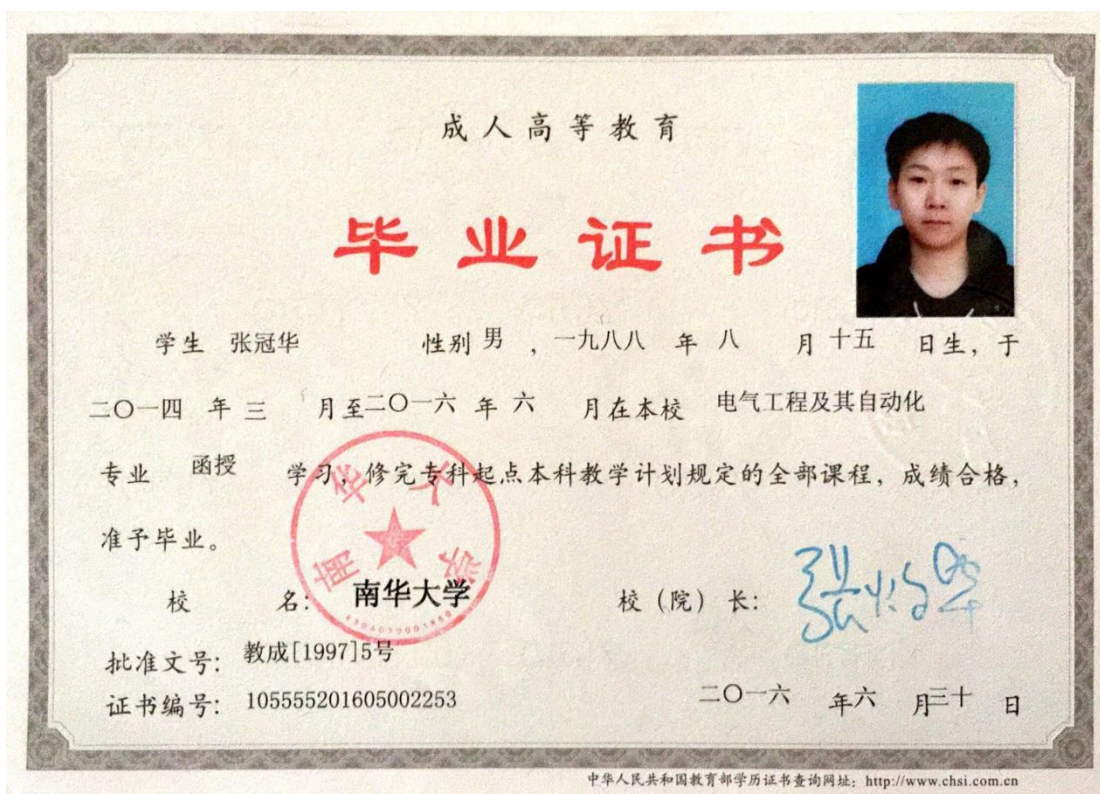 成人高等教育
毕业证书
学生 张冠华 性别 男 ，一九八八 年 八 月 十五 日生，于
二〇一四 年 三 月至二〇一六 年 六 月在本校 电气工程及其自动化
专业 函授 学习，修完专科起点本科教学计划规定的全部课程，成绩合格，
准予毕业。
南华大学
校 名： 南华大学 校（院）长：
批准文号： 教成[1997]5号
证书编号： 105555201605002253 二〇一六 年六 月三十 日
中华人民共和国教育部学历证书查询网址：http://www.chsi.com.cn